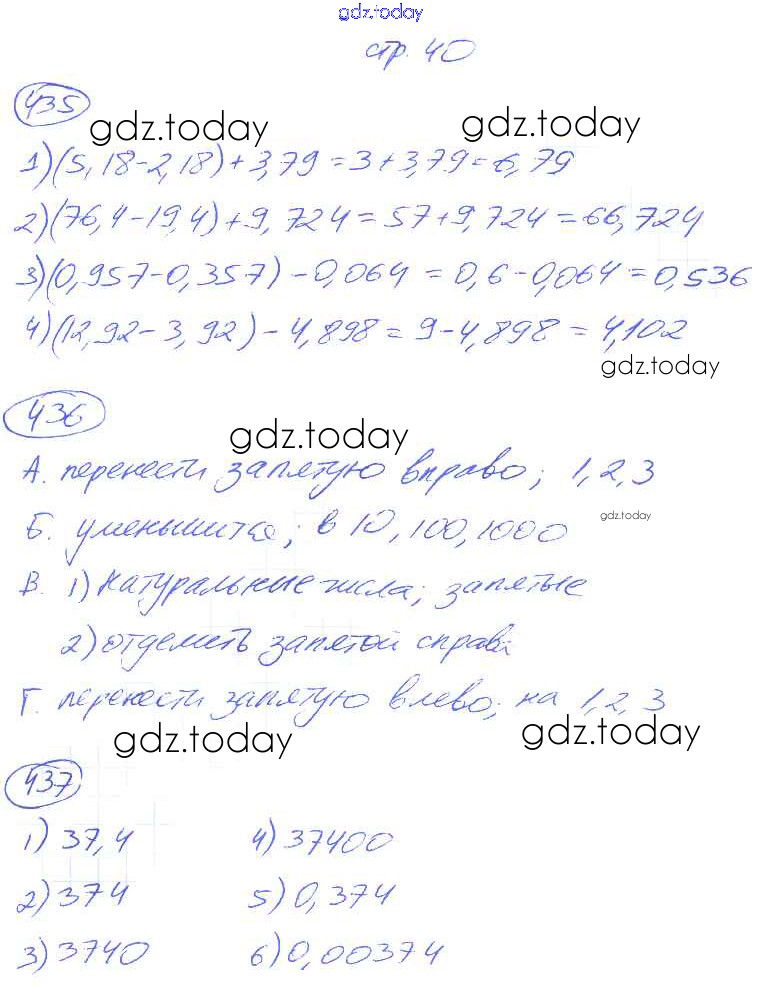 gdz.today
стр. 40
435
gdz.today gdz.today
1) (5,18-2,18)+3,79=3+3,79=6,79
2) (76,4-19,4)+9,724=57+9,724=66,724
3) (0,957-0,357)-0,064=0,6-0,064=0,536
4) (12,92-3,92)-4,898=9-4,898=4,102
gdz.today
436
gdz.today
А. перенести запятую вправо; 1,2,3
Б. уменьшится; в 10, 100, 1000
gdz.today
В. 1) натуральные числа; запятые
2) отделить запятой справа
Г. перенести запятую влево; на 1,2,3
gdz.today gdz.today
437
1) 37,4 4) 37400
2) 374 5) 0,374
3) 3740 6) 0,00374